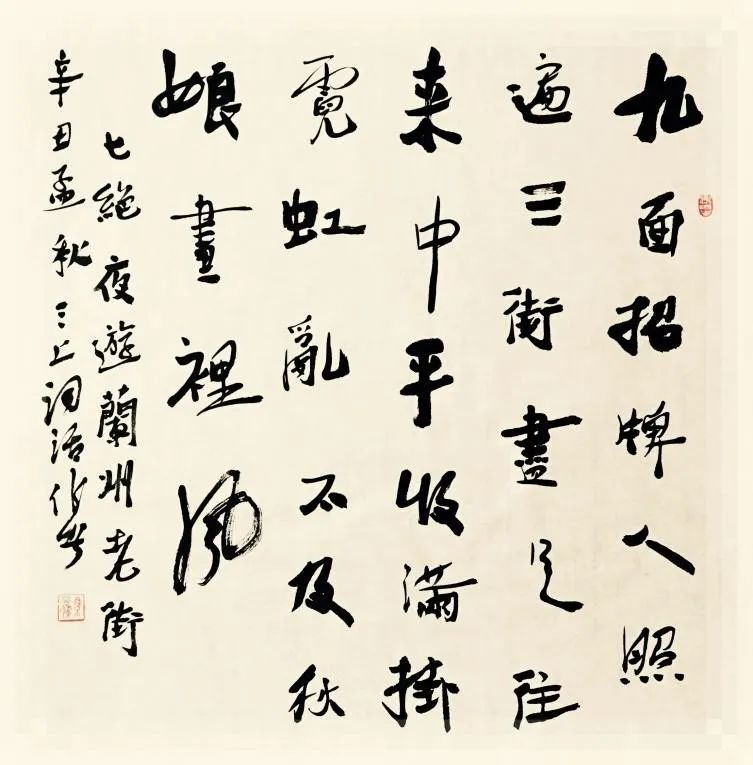 九面招牌人照
遍三街盡是往
来中平收滿掛
霓虹亂不及秋
娘畫裡風
七絕夜遊蘭州老街
辛丑孟秋三上詞